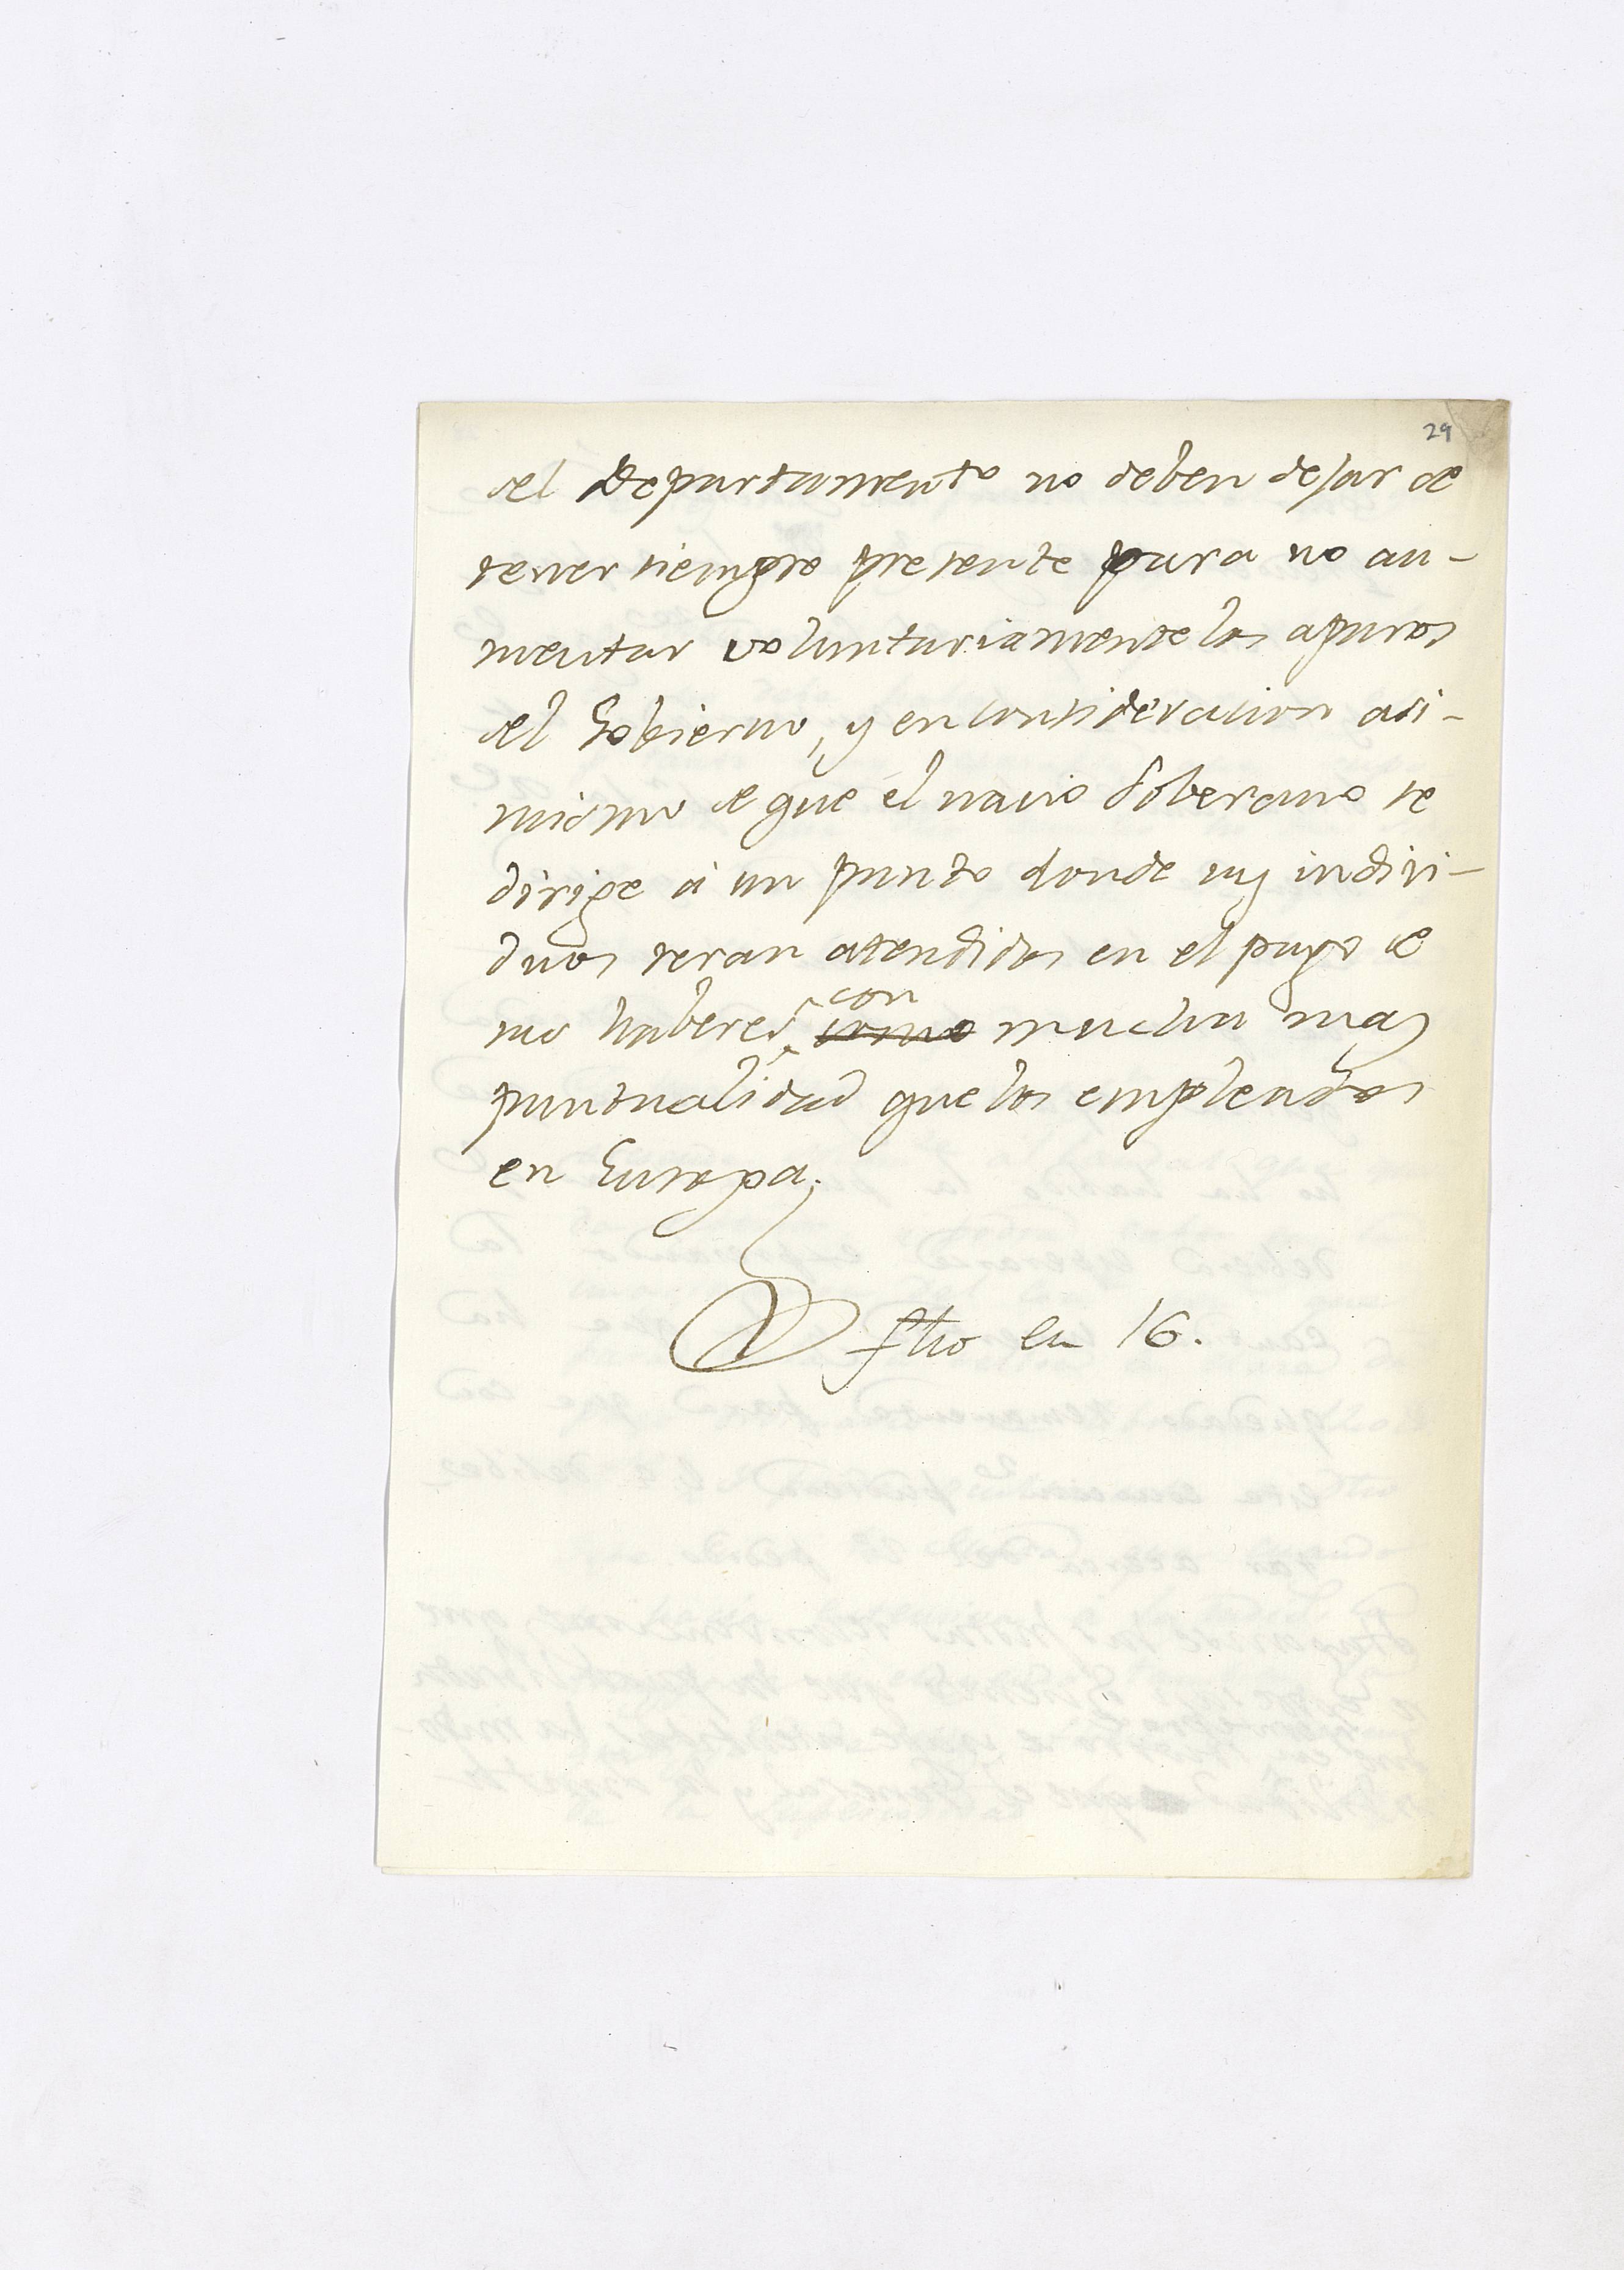 29
del Departamento no deben dejar de
tener siempre presente para no au-
mentar voluntariamente los apuros
del Gobierno, y en consideracion asi-
mismo de que el navio Soberano se
dirige á un punto donde sus indivi-
duos seran atendidos en el pago de
sus haberes con
como mucha mas
puntualidad que los empleados
en Europa.
fho en 16.